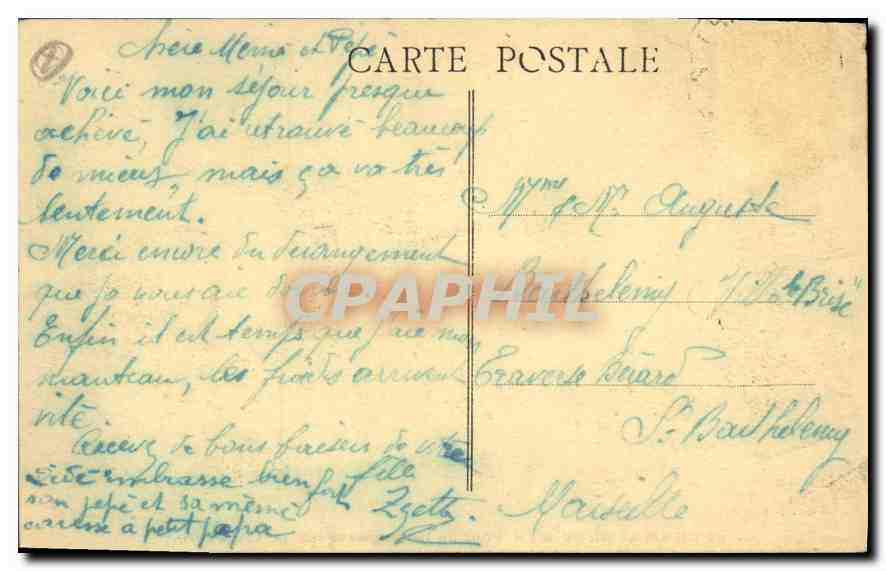 Chère Mémé et Pépé
CARTE POSTALE
Voici mon séjour presque
achevé, J'ai retrouvé beaucoup
de mieux, mais ça va très
lentement.
Merci encore du dérangement
que je vous ai
Enfin il est temps que j'aie mon
manteau, les froids arrivent
vite
Recevez de bons baisers de votre
fille
Zyette
embrasse bien fort
son pepé et sa mémé
caresse a petit papa
Mme & Mr Auguste
Barthelemy (Villa la Brise"
Traverse Bérard
St Barthelemy
Marseille
CPAPHIL